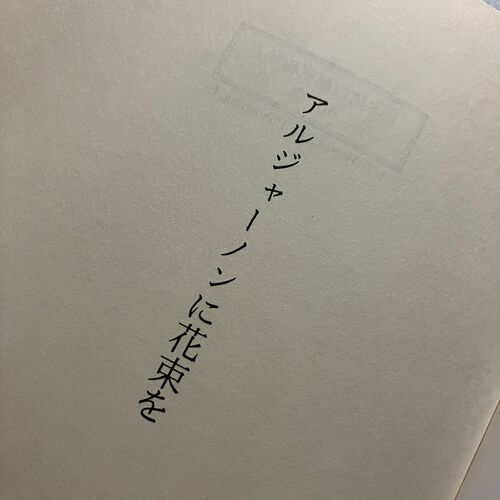 アルジャーノンに花束を